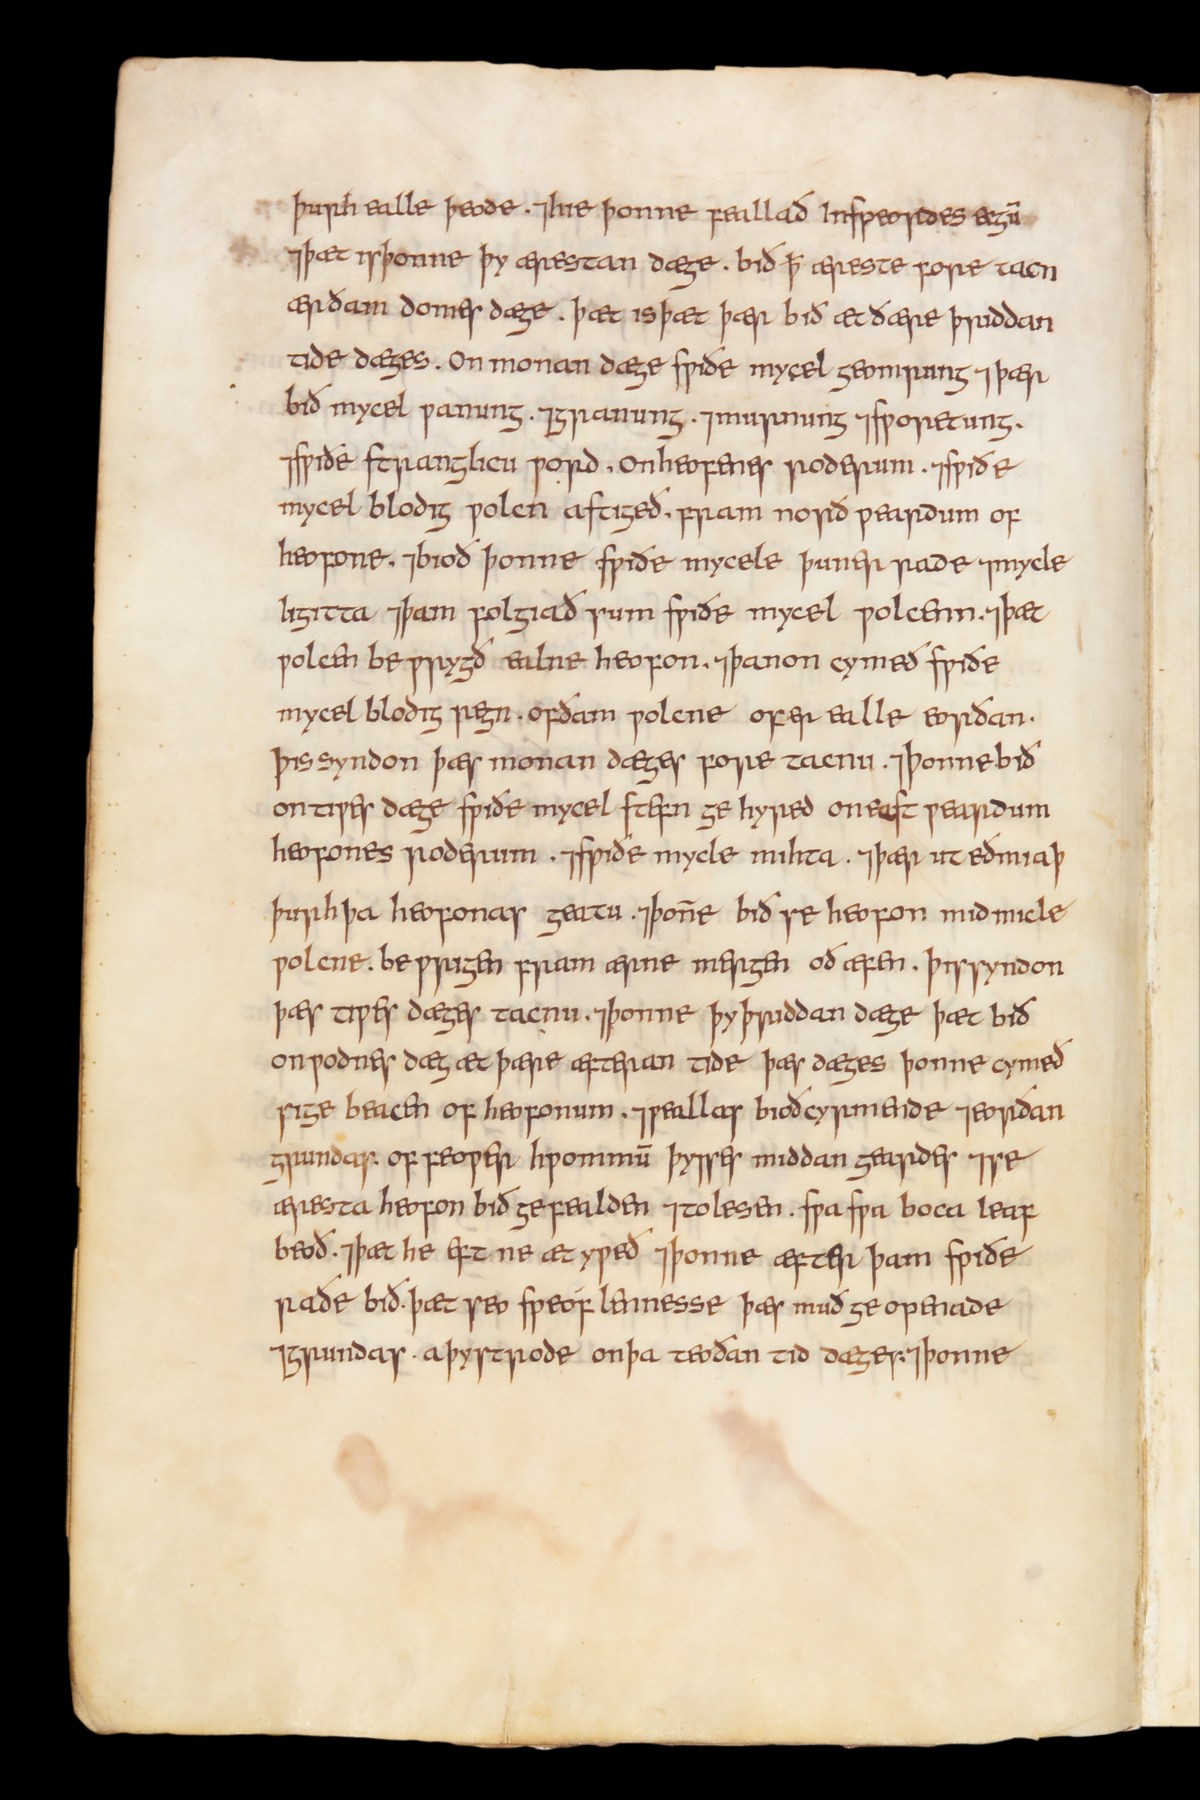 þurh ealle þeode · ⁊hie þonne feallað Inspeordes ecgū
⁊þæt isþonne þy ærestan dæge . bið þ̄ æreste fore tacn
ærðam domes dæge . þæt is þæt þær bið æt ðære þriddan
tide dæges . On monan dæge sƿiðe mycel geomrung ⁊þær
bið mycel ƿanung . ⁊granung . ⁊murnung ⁊sƿoretung .
⁊sƿiðe stranglicu ƿord . Onheofenes roderum . ⁊sƿiðe
mycel blodig ƿolcn astigeð . fram norð ƿeardum of
heofone . ⁊bioð þonne sƿiðe mycele þuner rade ⁊mycle
ligitta ⁊þam folgiað sum sƿiðe mycel ƿolcenn . ⁊þæt
ƿolcen be ƿrygð ealne heofon . ⁊þanon cymeð sƿiðe
mycel blodig regn . ofðam ƿolcne ofer ealle eorðan .
þis syndon þæs monan dæges fore tacnu . ⁊þonne bið
on tiƿes dæge sƿiðe mycel stefn ge hyred on east ƿeardum
heofones roderum . ⁊sƿiðe mycle mihta . ⁊þær ut eðmiaþ
þurh þa heofonas geatu . ⁊þon̄e bið se heofon mid micle
ƿolcne . be ƿrigen fram ærne mergen oð æfen . þis syndon
þæs tiƿes dæges tacnu . ⁊þonne þy þriddan dæge þæt bið
on ƿodnes dæg æt þære æfteran tide þæs dæges þonne cymeð
sige beacen of heofonum . ⁊ƿeallas bioð cyrmende ⁊eorðan
grundas . of feoƿer hƿommū þysses middan geardes ⁊se
æresta heofon bið ge fealden ⁊tolesen . sƿa sƿa boca leaf
beoð . ⁊þæt he eft ne æt yƿeð ⁊þonne æfter þam sƿiðe
raðe bið . þæt seo sƿeorf lennesse þæs muð ge openade
⁊grundas . aþystrode on þa teoðan tid dæges . ⁊þonne